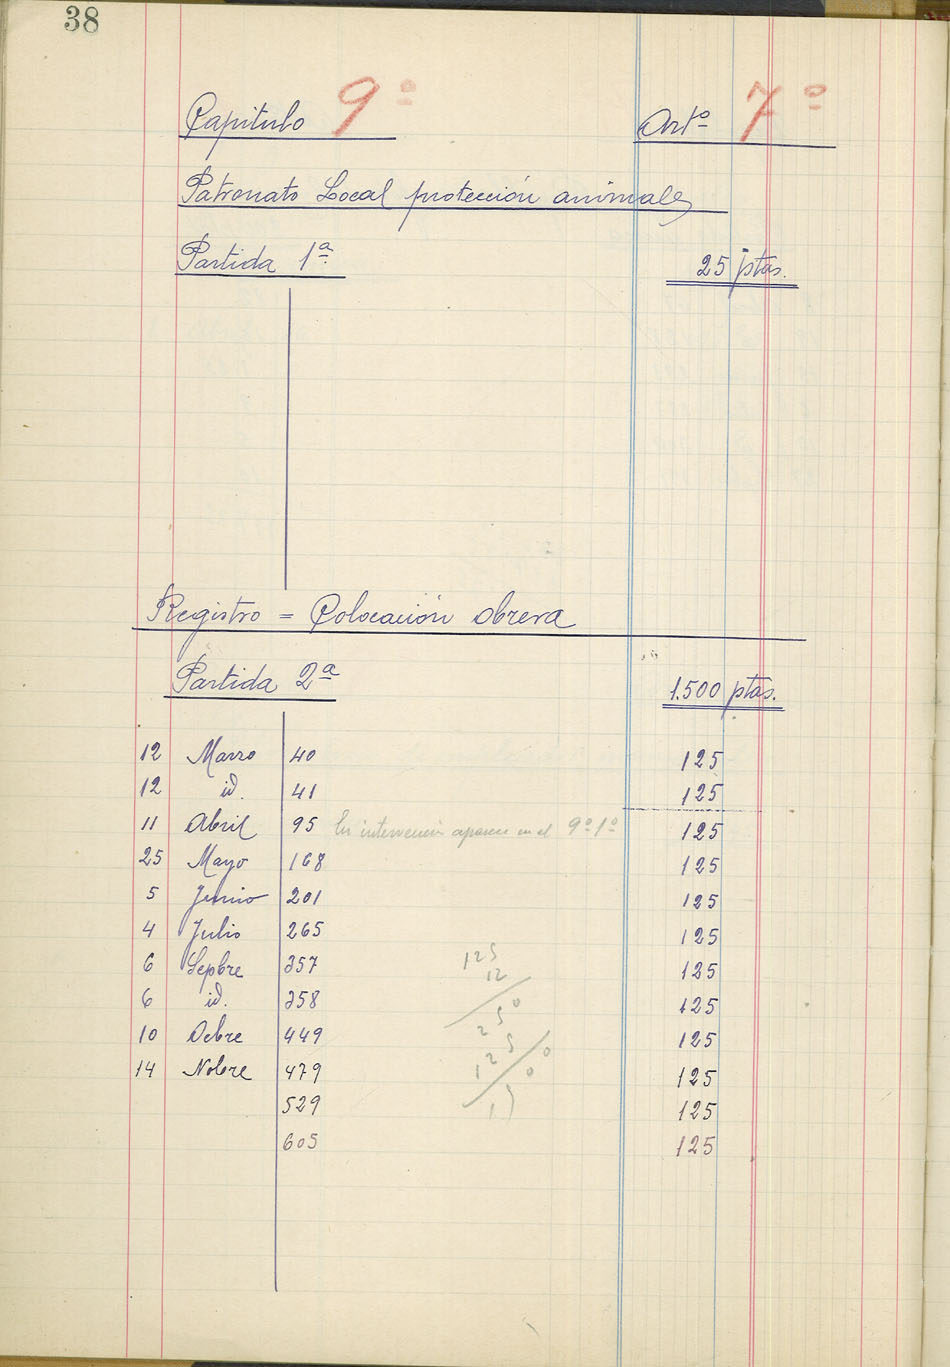 38
Capitulo 9º Artº 7º
Patronato Local protección animales
Partida 1ª 25 ptas.
Registro = Colocación obrera
Partida 2ª 1.500 ptas.
12 Marzo 40 125
12 id. 41 125
11 Abril 95 En intervención aparece en el 9º 1º 125
25 Mayo 168 125
5 Junio 201 125
4 Julio 265 125
6 Sepbre 357 125
6 id. 358 125
10 Ocbre 449 125
14 Nobre 479 125
529 125
605 125
125
12
250
125